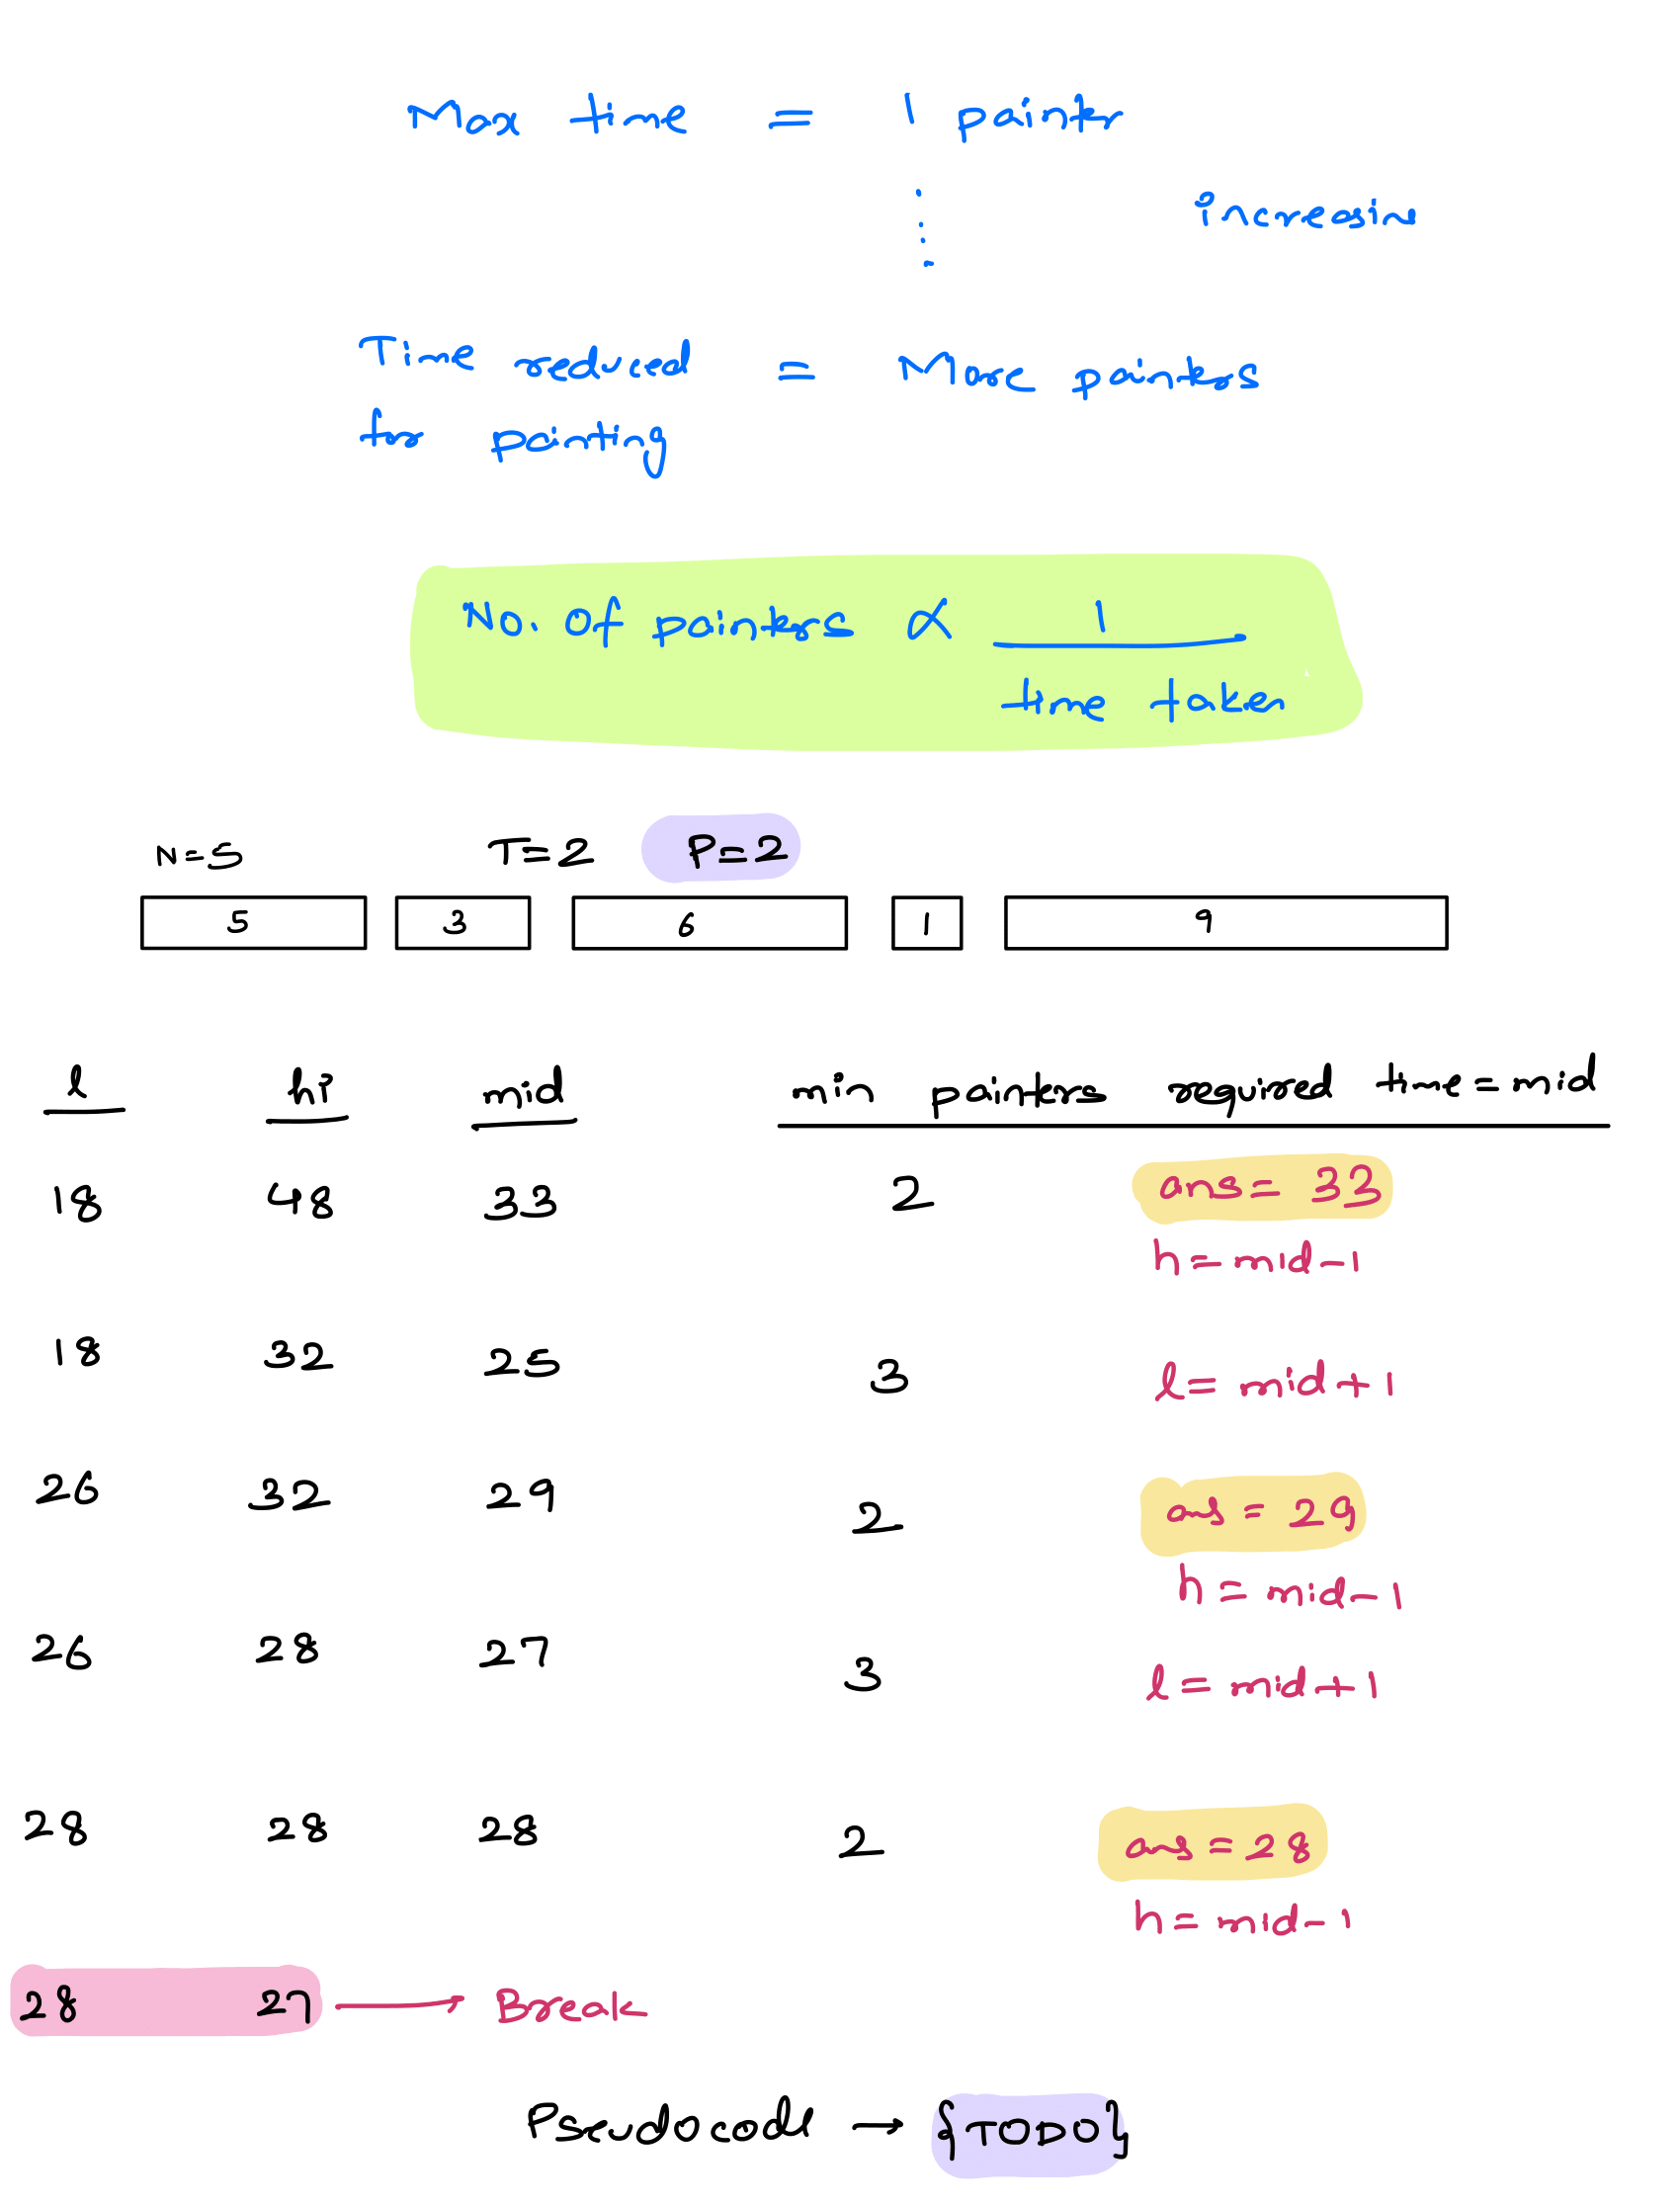 Max time = 1 painter
increasin
Time reduced = More painters
for painting
No. Of painters ∝ 1
time taken
N=5 T=2 P=2
5 3 6 1 9
l hi mid min painters required time=mid
18 48 33 2 ans= 33
h=mid-1
18 32 25 3 l= mid+1
26 32 29 2 ans = 29
h = mid-1
26 28 27 3 l= mid+1
28 28 28 2 ans = 28
h= mid-1
28 27 → Break
Pseudocode → {TODO}